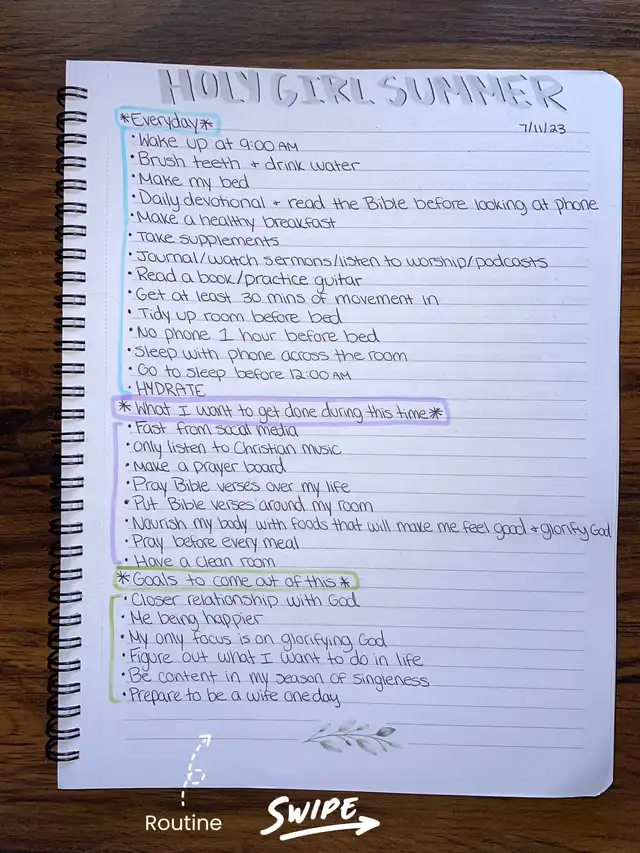 HOLY GIRL SUMMER
*Everyday*
7/11/23
• Wake up at 9:00 AM
• Brush teeth + drink water
• Make my bed
• Daily devotional + read the Bible before looking at phone
• Make a healthy breakfast
• Take supplements
• Journal/watch sermons/listen to worship/podcasts
• Read a book/practice guitar
• Get at least 30 mins of movement in
• Tidy up room before bed
• No phone 1 hour before bed
• Sleep with phone across the room
• Go to sleep before 12:00 AM
• HYDRATE
*What I want to get done during this time*
• Fast from socal media
• Only listen to Christian music
• Make a prayer board
• Pray Bible verses over my life
• Put Bible verses around my room
• Nourish my body with foods that will make me feel good + glorify God
• Pray before every meal
• Have a clean room
*Goals to come out of this*
• Closer relationship with God
• Me being happier
• My only focus is on glorifying God
• Figure out what I want to do in life
• Be content in my season of singleness
• Prepare to be a wife one day
Routine
SWIPE